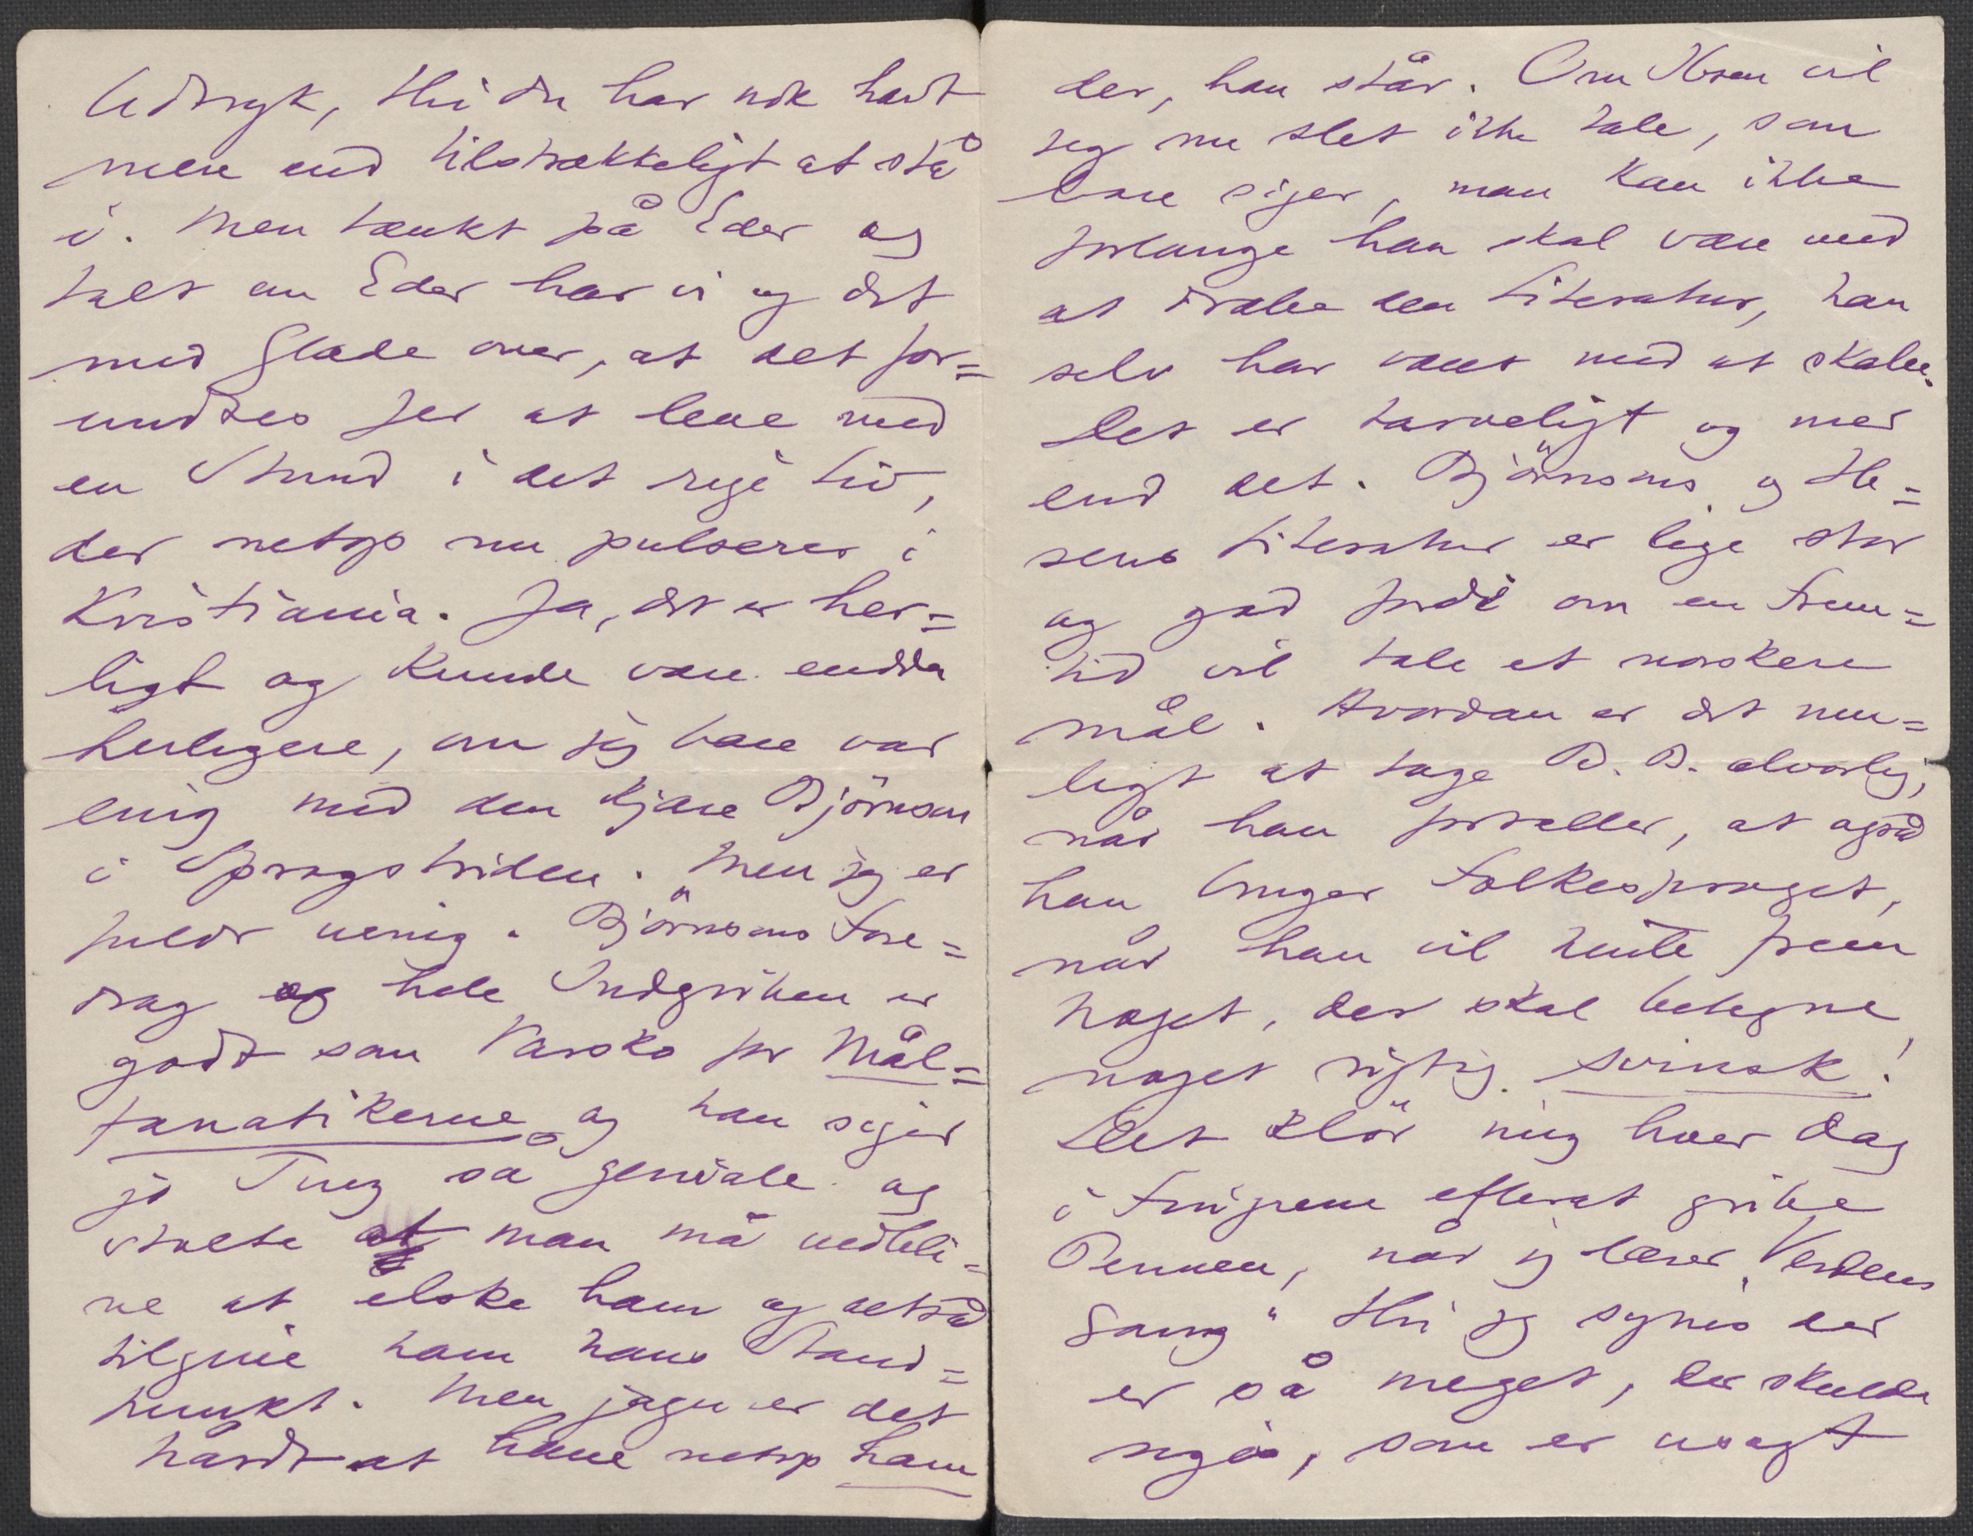 Udtryk, thi du har nok havt
mere end tilstrækkeligt at stå
i. Men tænkt på Eder og
talt om Eder har vi og det
med Glæde over, at det for=
undtes Jer at leve med
en Stund i det rige Liv,
der netop nu pulserer i
Kristiania. Ja, det er her=
ligt og kunde være endda
herligere, om jeg bare var
enig med den kjære Björnson
i Sprogstriden. Men jeg er
fuldt uenig. Björnsons Fore=
drag og hele Indgriben er
godt som Varsko for Mål=
fanatikerne og han siger
jo Ting så geniale og
stolte at man må vedbli=
ve at elske ham og altså
tilgive ham hans Stand=
punkt. Men jagu er det
hårdt at have netop ham
der, han står. Om Ibsen vil
jeg nu slet ikke tale, som
bare siger, man kan ikke
forlange han skal være med
at dræbe den Literatur, han
selv har været med at skabe.
Det er tarveligt og mer
end det. Björnsons og Ib=
sens Literatur er lige stor
og god fordi om en Frem=
tid vil tale et norskere
mål. Hvordan er det mu=
ligt at tage B. B. alvorlig,
når han fortæller, at også
han bruger Folkesproget,
når han vil hente frem
noget, der skal betegne
noget rigtig svinsk!
Det klör mig hver Dag
i Fingrene efterat gribe
Pennen, når jeg læser „Verdens
Gang" thi jeg synes der
er så meget, der skulde
siges, som er usagt